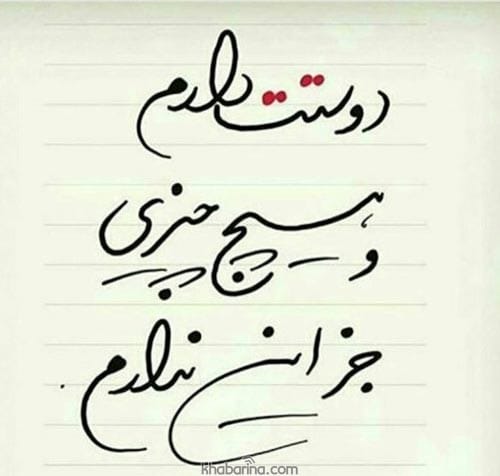 دوستت دارم
و هیچ چیزی
جز این ندارم.
khabarina.com